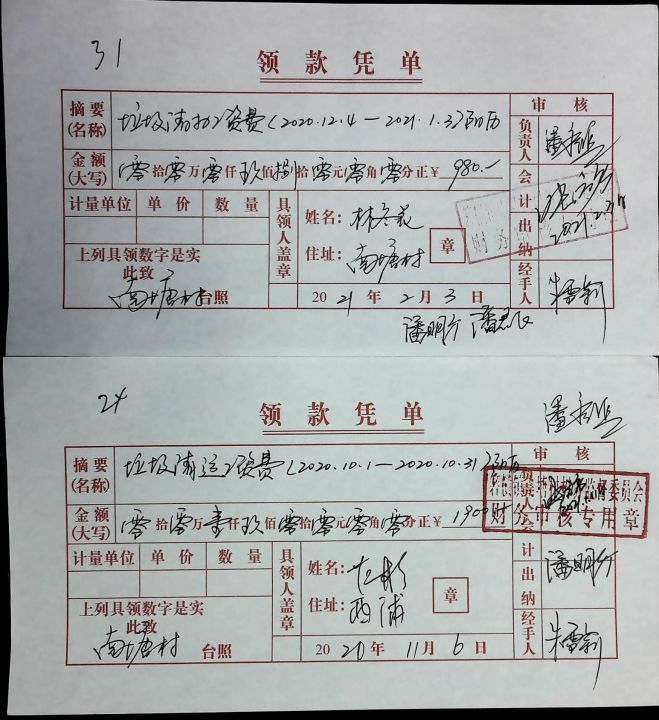 31
领款凭单
摘要(名称) 垃圾清扫工资费(2020.12.4—2021.1.3)阳历
审核
金额(大写) 零拾零万零仟玖佰捌拾零元零角零分正￥980.—
负责人
计量单位 单价 数量
具领人盖章
姓名:林冬花
住址:南塘村
章
会计
2021.2.
财务
上列具领数字是实
此致
南塘村台照
2021年2月3日
出纳
经手人 朱雪钏
潘明行
24
领款凭单
摘要(名称) 垃圾清运工资费(2020.10.1—2020.10.31)阳历
审核
金额(大写) 零拾零万壹仟玖佰零拾零元零角零分正￥1900
负责人
监督委员会
财务审核专用章
计量单位 单价 数量
具领人盖章
姓名:
住址:西浦
章
会计
上列具领数字是实
此致
南塘村台照
2020年11月6日
出纳 潘明行
经手人 朱雪钏